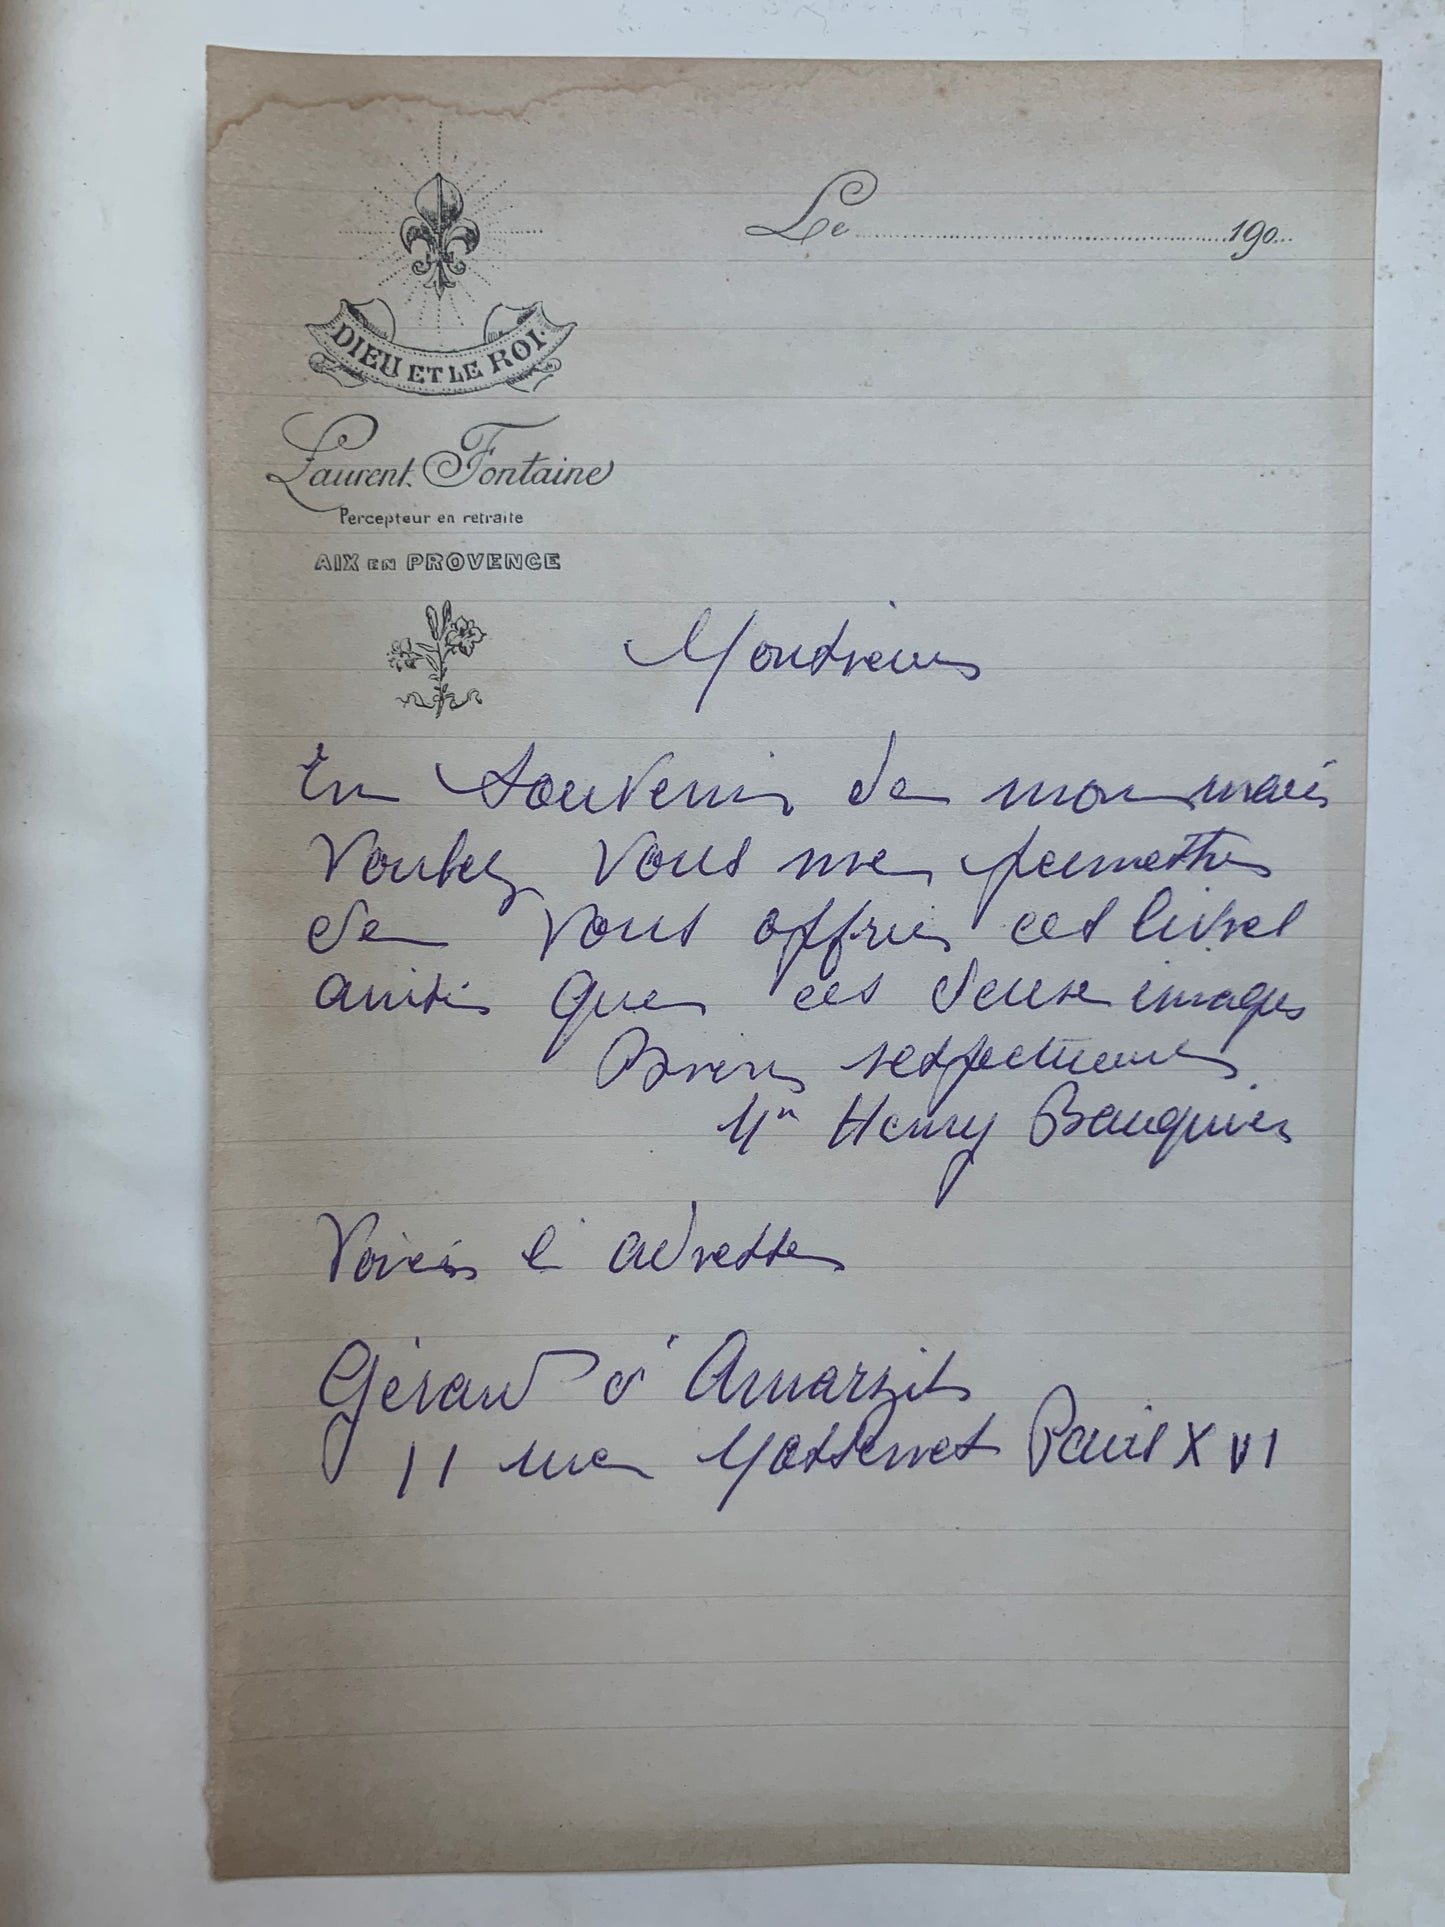 Le 190
DIEU ET LE ROI.
Laurent Fontaine
Percepteur en retraite
AIX EN PROVENCE
Monsieur
En souvenir de mon mari
Voulez vous me permettre
de vous offrir ces livres
ainsi que ces deux images
Bien respectueux
Mm Henry Bauquier
Voici l'adresse
Gérard d'Amarzit
11 rue Massenet Paris XVI